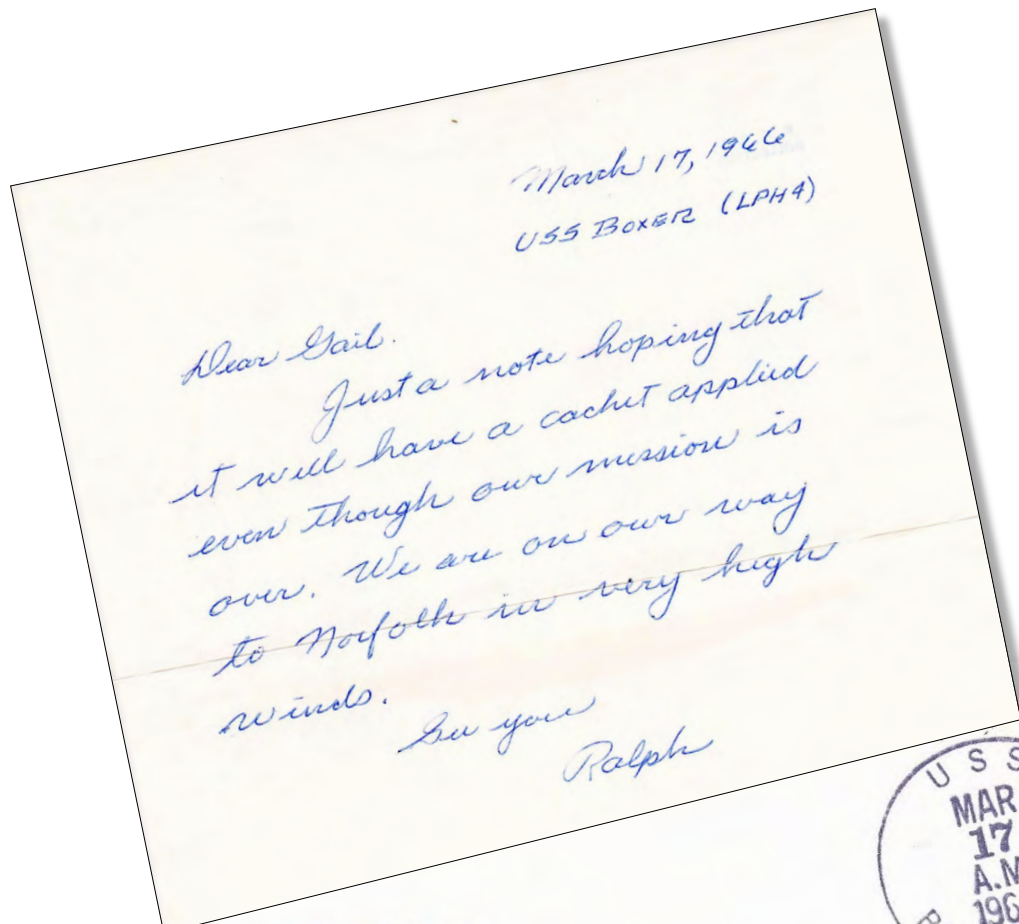 March 17, 1966
USS BOXER (LPH4)
Dear Gail.
Just a note hoping that
it will have a cachet applied
even though our mission is
over. We are on our way
to Norfolk in very high
winds.
See you
Ralph
USS
MAR
17
A.M
196
B